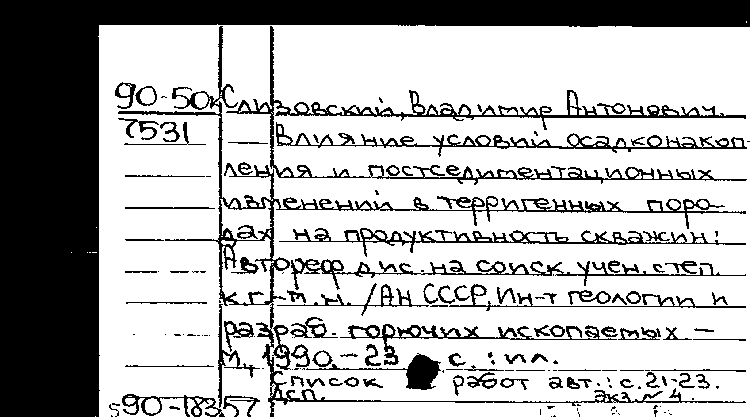 90-50к Слизовский, Владимир Антонович.
7531 Влияние условий осадконакоп-
ления и постседиментационных
изменений в терригенных поро-
дах на продуктивность скважин:
Автореф дис. на соиск. учен. степ.
к.г.-м.н. /АН СССР, Ин-т геологии и
разраб. горючих ископаемых. –
М., 1990.-23 с. : ил.
Список работ авт.: с. 21-23.
ДСП. экз. № 4
90-18357